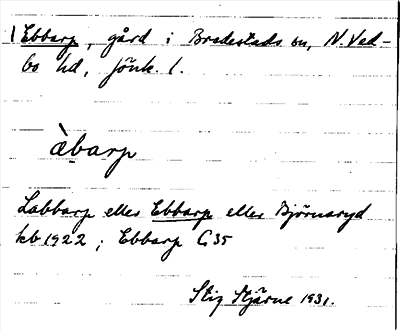 Ebbarp, gård i Bredestads sn, N. Ved-
bo hd, Jönk. l.
àbarp
Labbarp eller Ebbarp eller Björnaryd
kb 1922; Ebbarp G 35
Stig Stjärne 1931.